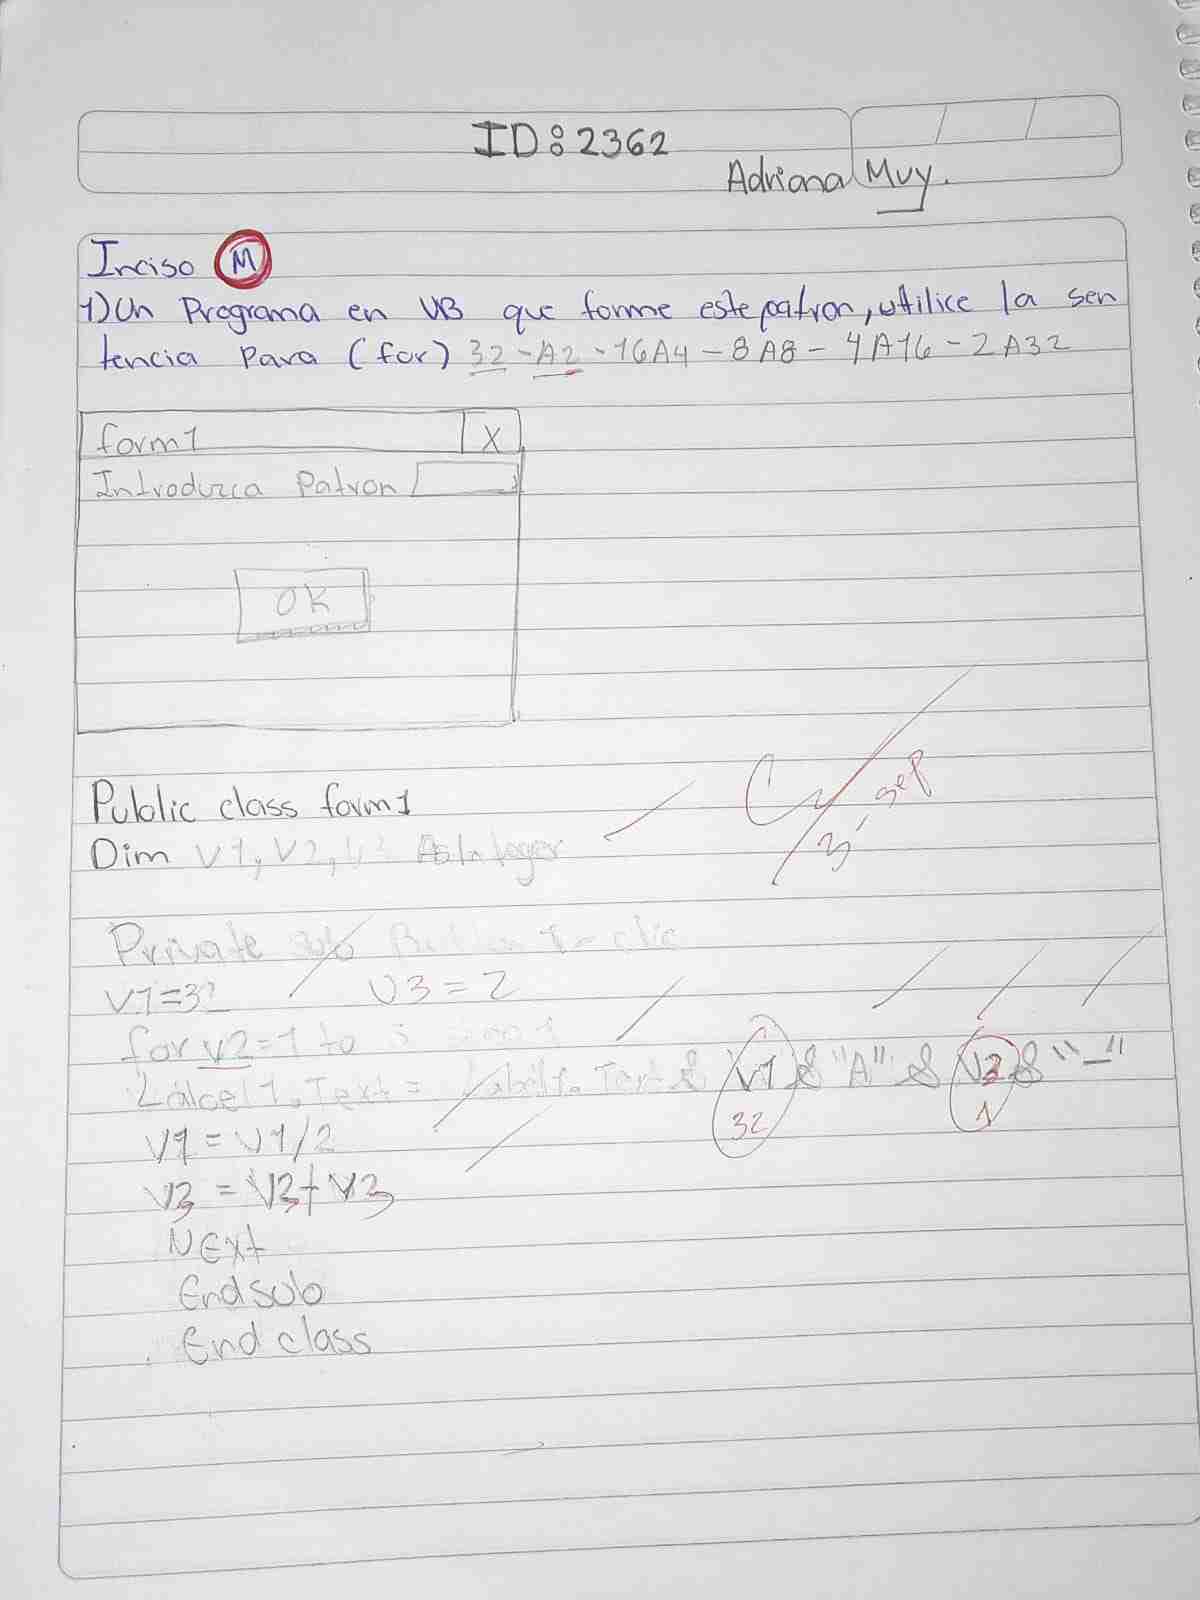 ID:2362
Adriana Muy.
Inciso M
1) Un Programa en VB que forme este patron, utilice la sen
tencia Para (for) 32-A2-16A4-8A8-4A16-2A32
form1 X
Introduzca Patron
OK
Public class form1
Dim V1, V2, V3 As Integer
3 sep
Private sub Button 1-clic
V1=32 V3=2
for V2=1 to 5
Label1.Text = Label1.Text & V1 & "A" & V3 & "-"
32 1
V1 = V1/2
V3 = V3+V3
Next
End sub
End class